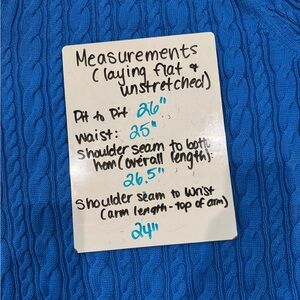 Measurements
(laying flat &
unstretched)
Pit to Pit 26"
Waist: 25"
Shoulder seam to bottom
hem (overall length):
26.5"
Shoulder seam to wrist
(arm length - top of arm)
24"